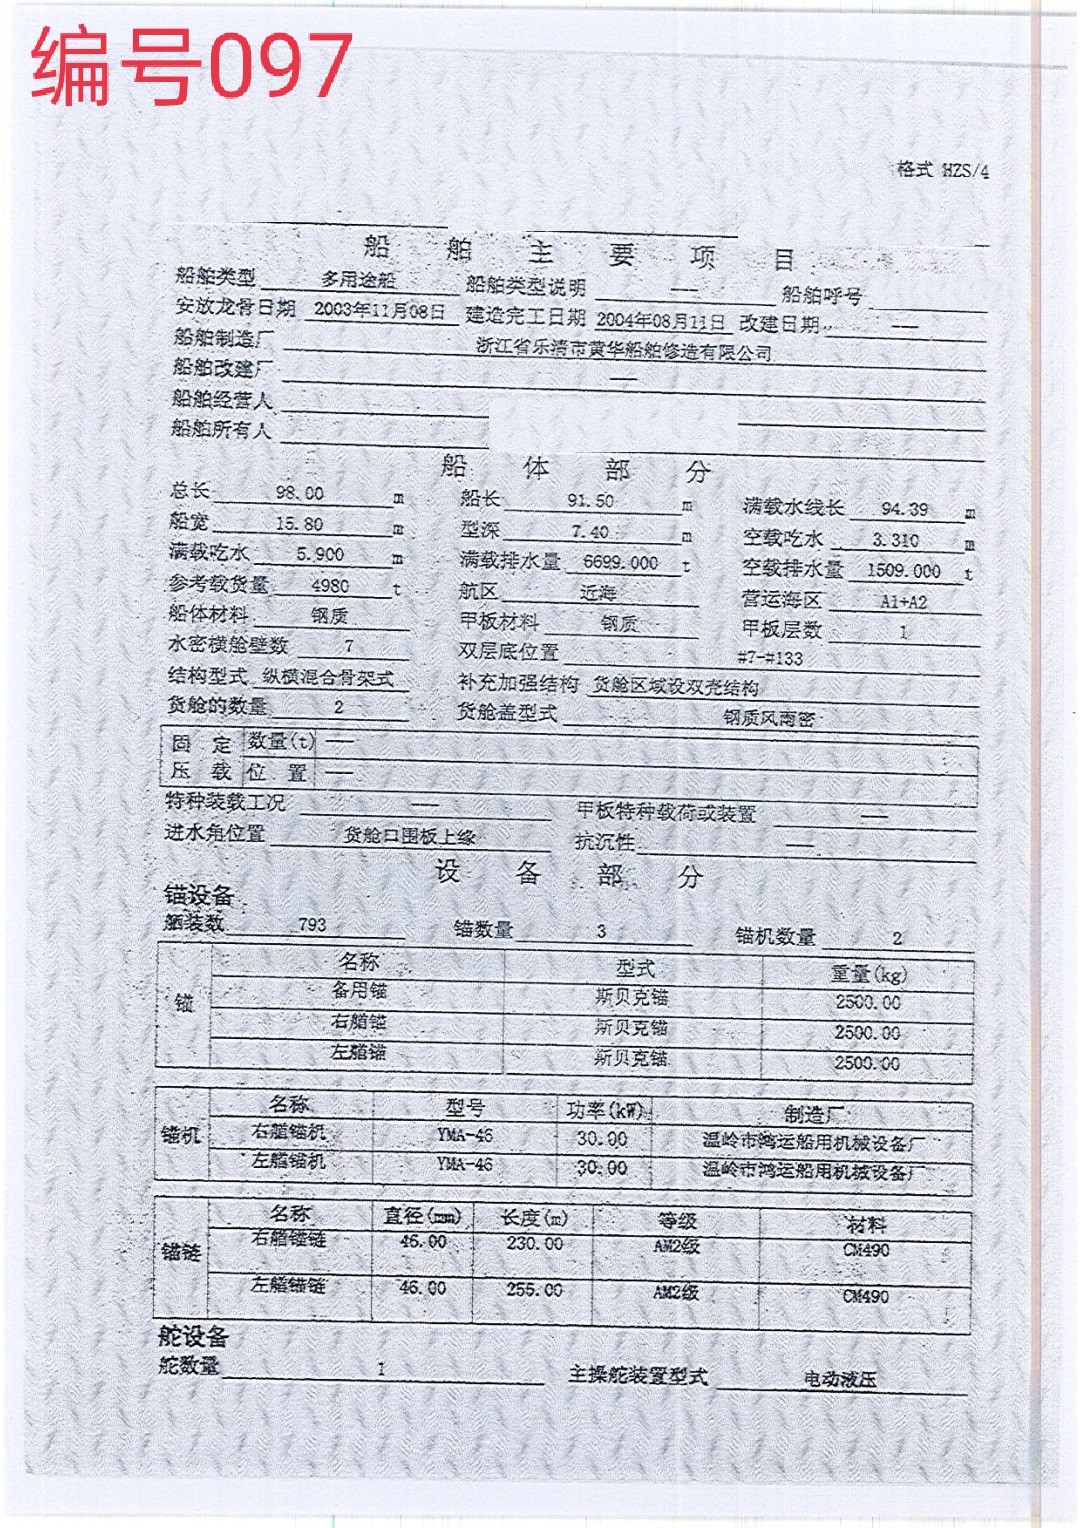 编号097
格式 HZS/4
船舶主要项目
船舶类型 多用途船 船舶类型说明 — 船舶呼号
安放龙骨日期 2003年11月08日 建造完工日期 2004年08月11日 改建日期 —
船舶制造厂 浙江省乐清市黄华船舶修造有限公司
船舶改建厂 —
船舶经营人
船舶所有人
船体部分
总长 98.00 m 船长 91.50 m 满载水线长 94.39 m
船宽 15.80 m 型深 7.40 m 空载吃水 3.310 m
满载吃水 5.900 m 满载排水量 6699.000 t 空载排水量 1509.000 t
参考载货量 4980 t 航区 近海 营运海区 A1+A2
船体材料 钢质 甲板材料 钢质 甲板层数 1
水密横舱壁数 7 双层底位置 #7-#133
结构型式 纵横混合骨架式 补充加强结构 货舱区域设双壳结构
货舱的数量 2 货舱盖型式 钢质风雨密
固定 数量(t) —
压载 位置 —
特种装载工况 — 甲板特种载荷或装置 —
进水角位置 货舱口围板上缘 抗沉性 —
设备部分
锚设备
舾装数 793 锚数量 3 锚机数量 2
名称 型式 重量(kg)
锚 备用锚 斯贝克锚 2500.00
右艏锚 斯贝克锚 2500.00
左艏锚 斯贝克锚 2500.00
名称 型号 功率(kW) 制造厂
锚机 右艏锚机 YMA-46 30.00 温岭市鸿运船用机械设备厂
左艏锚机 YMA-46 30.00 温岭市鸿运船用机械设备厂
名称 直径(mm) 长度(m) 等级 材料
锚链 右艏锚链 46.00 230.00 AM2级 CM490
左艏锚链 46.00 255.00 AM2级 CM490
舵设备
舵数量 1 主操舵装置型式 电动液压